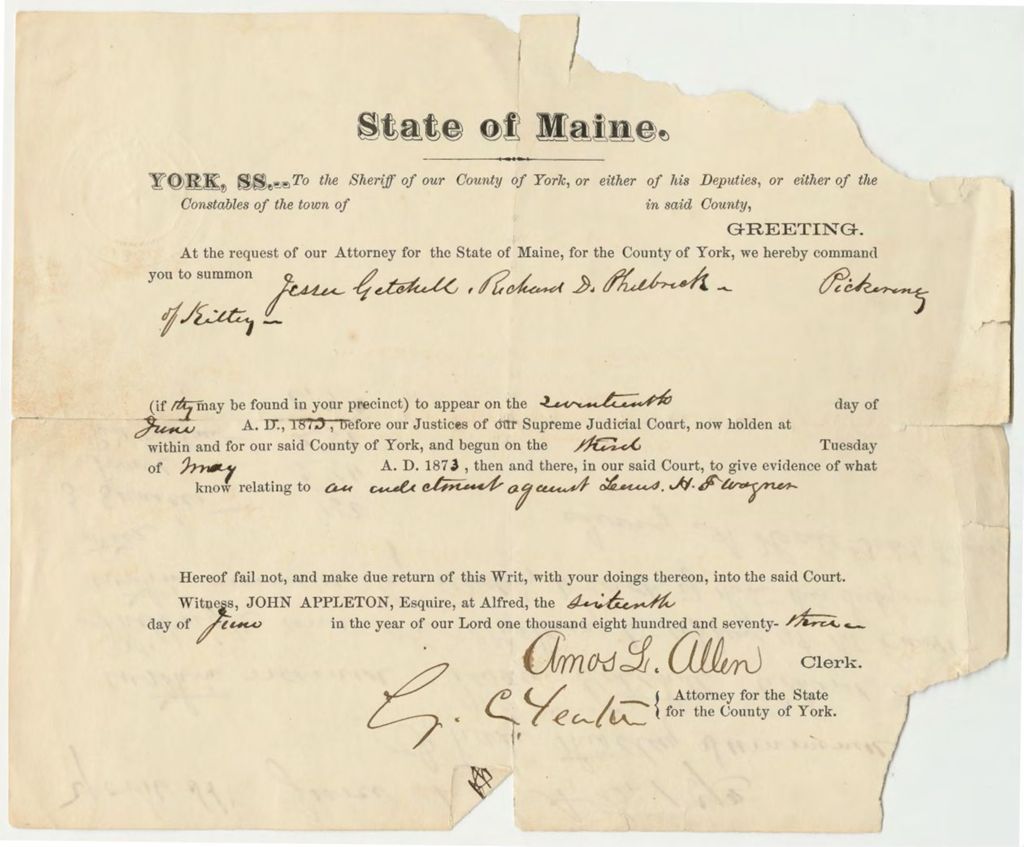 State of Maine.
YORK, SS.--To the Sheriff of our County of York, or either of his Deputies, or either of the
Constables of the town of in said County,
GREETING.
At the request of our Attorney for the State of Maine, for the County of York, we hereby command
you to summon Jesse Getchell, Richard D. Philbrick - Pickering
of Kittery -
(if they may be found in your precinct) to appear on the seventeenth day of
June A. D., 1873, before our Justices of our Supreme Judicial Court, now holden at
within and for our said County of York, and begun on the third Tuesday
of May A. D. 1873, then and there, in our said Court, to give evidence of what
know relating to an indictment against H. F Wagner
Hereof fail not, and make due return of this Writ, with your doings thereon, into the said Court.
Witness, JOHN APPLETON, Esquire, at Alfred, the sixteenth
day of June in the year of our Lord one thousand eight hundred and seventy- three
Amos L. Allen Clerk.
G. C. Yeaton { Attorney for the State
for the County of York.